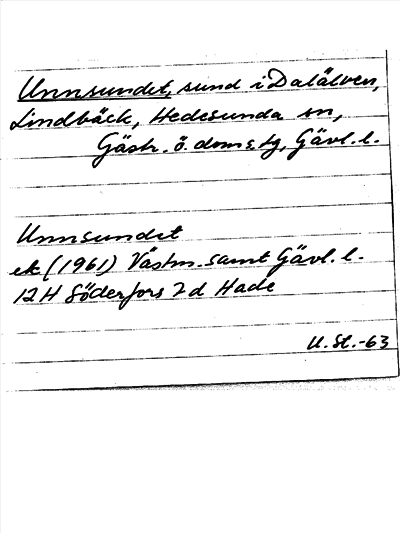 Unnsundet, sund i Dalälven,
Lindbäck, Hedesunda sn,
Gästr. ö. doms.tg, Gävl. l.
Unnsundet
ek (1961) Västm. samt Gävl. l.
12H Söderfors 7d Hade
U. St. -63